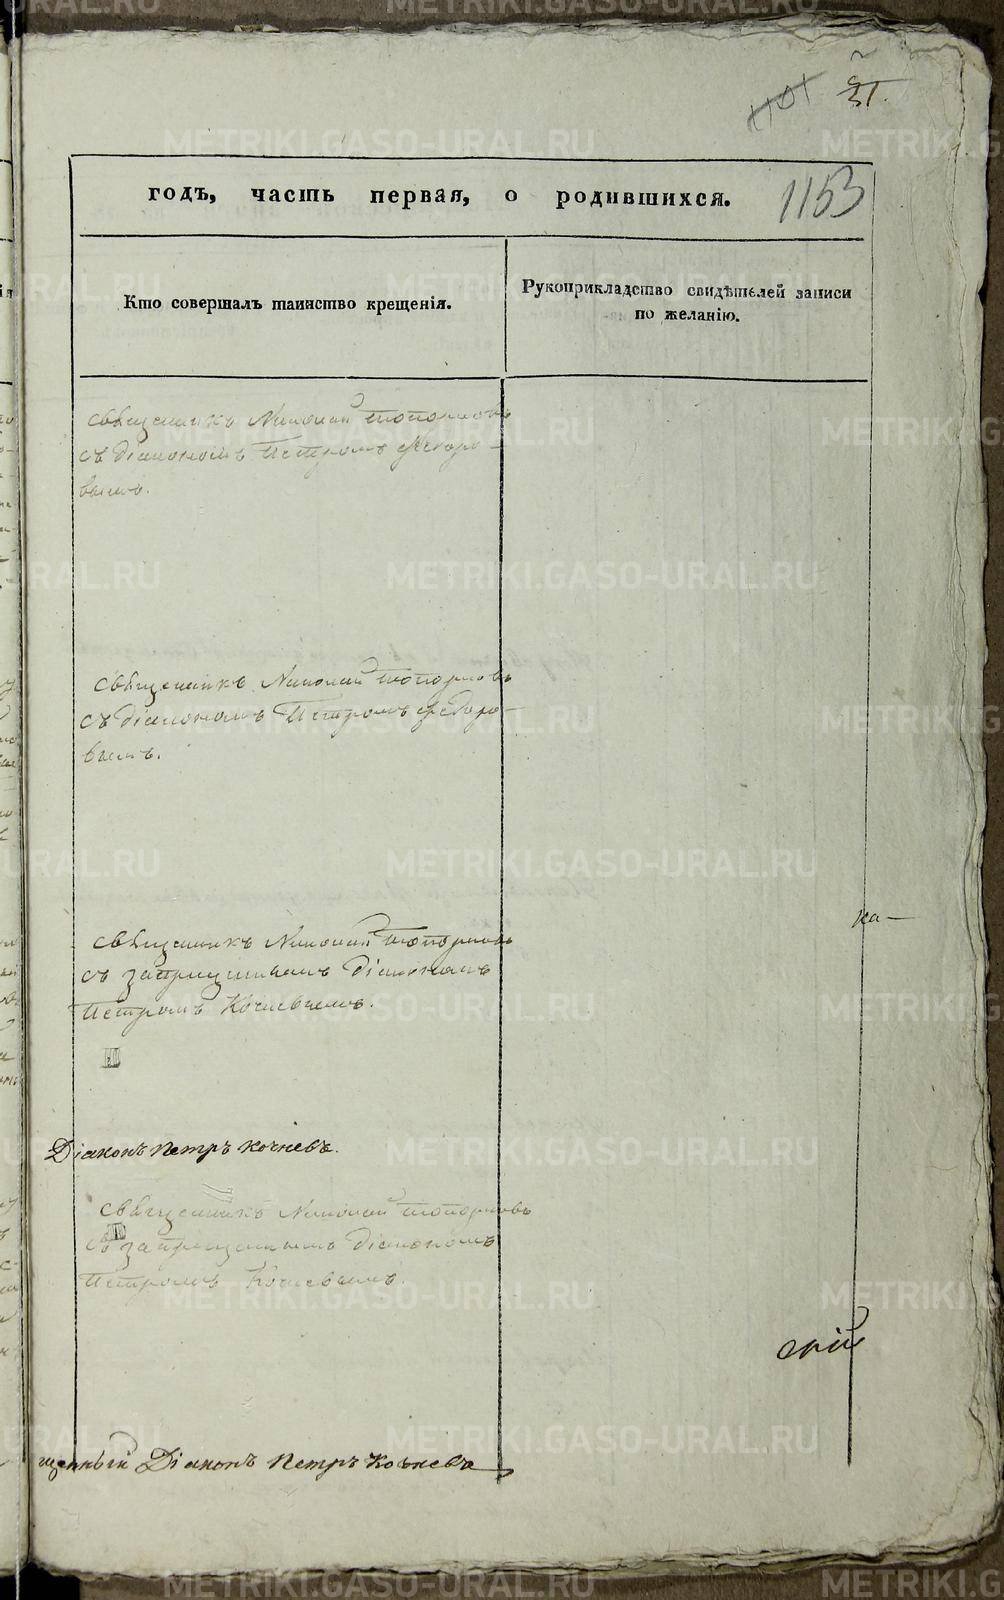 31.
1153
годъ, часть первая, о родившихся.
Кто совершалъ таинство крещенія.
Рукоприкладство свидѣтелей записи
по желанію.
Священникъ Николай Топорковъ
съ діакономъ Петромъ Ѳедоро-
вымъ.
Священникъ Николай Топорковъ
съ діакономъ Петромъ Ѳедоро-
вымъ.
ка-
Священникъ Николай Топорковъ
съ запрещеннымъ Діакономъ
Петромъ Кочневымъ.
Діаконъ Петръ Кочневъ.
Священникъ Николай Топорковъ
съ запрещеннымъ Діакономъ
Петромъ Кочневымъ.
скій
щенный Діаконъ Петръ Кочневъ
METRIKI.GASO-URAL.RU